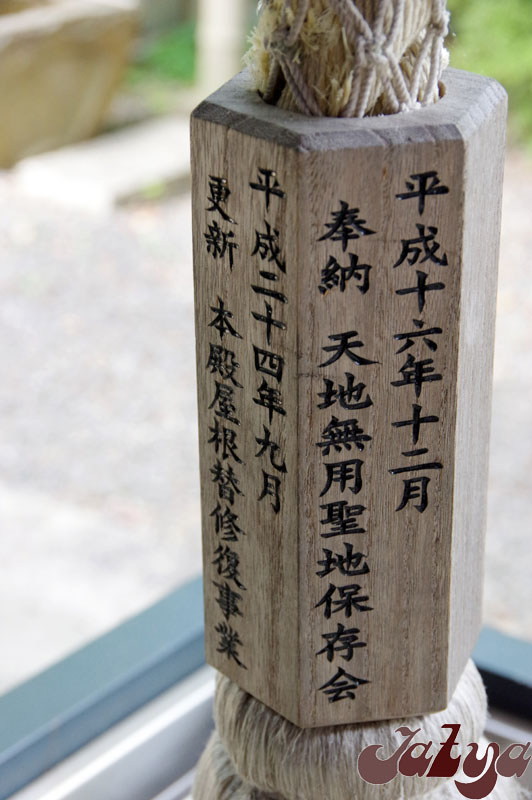 平成十六年十二月
奉納　天地無用聖地保存会
平成二十四年九月
更新　本殿屋根替修復事業
Jatya